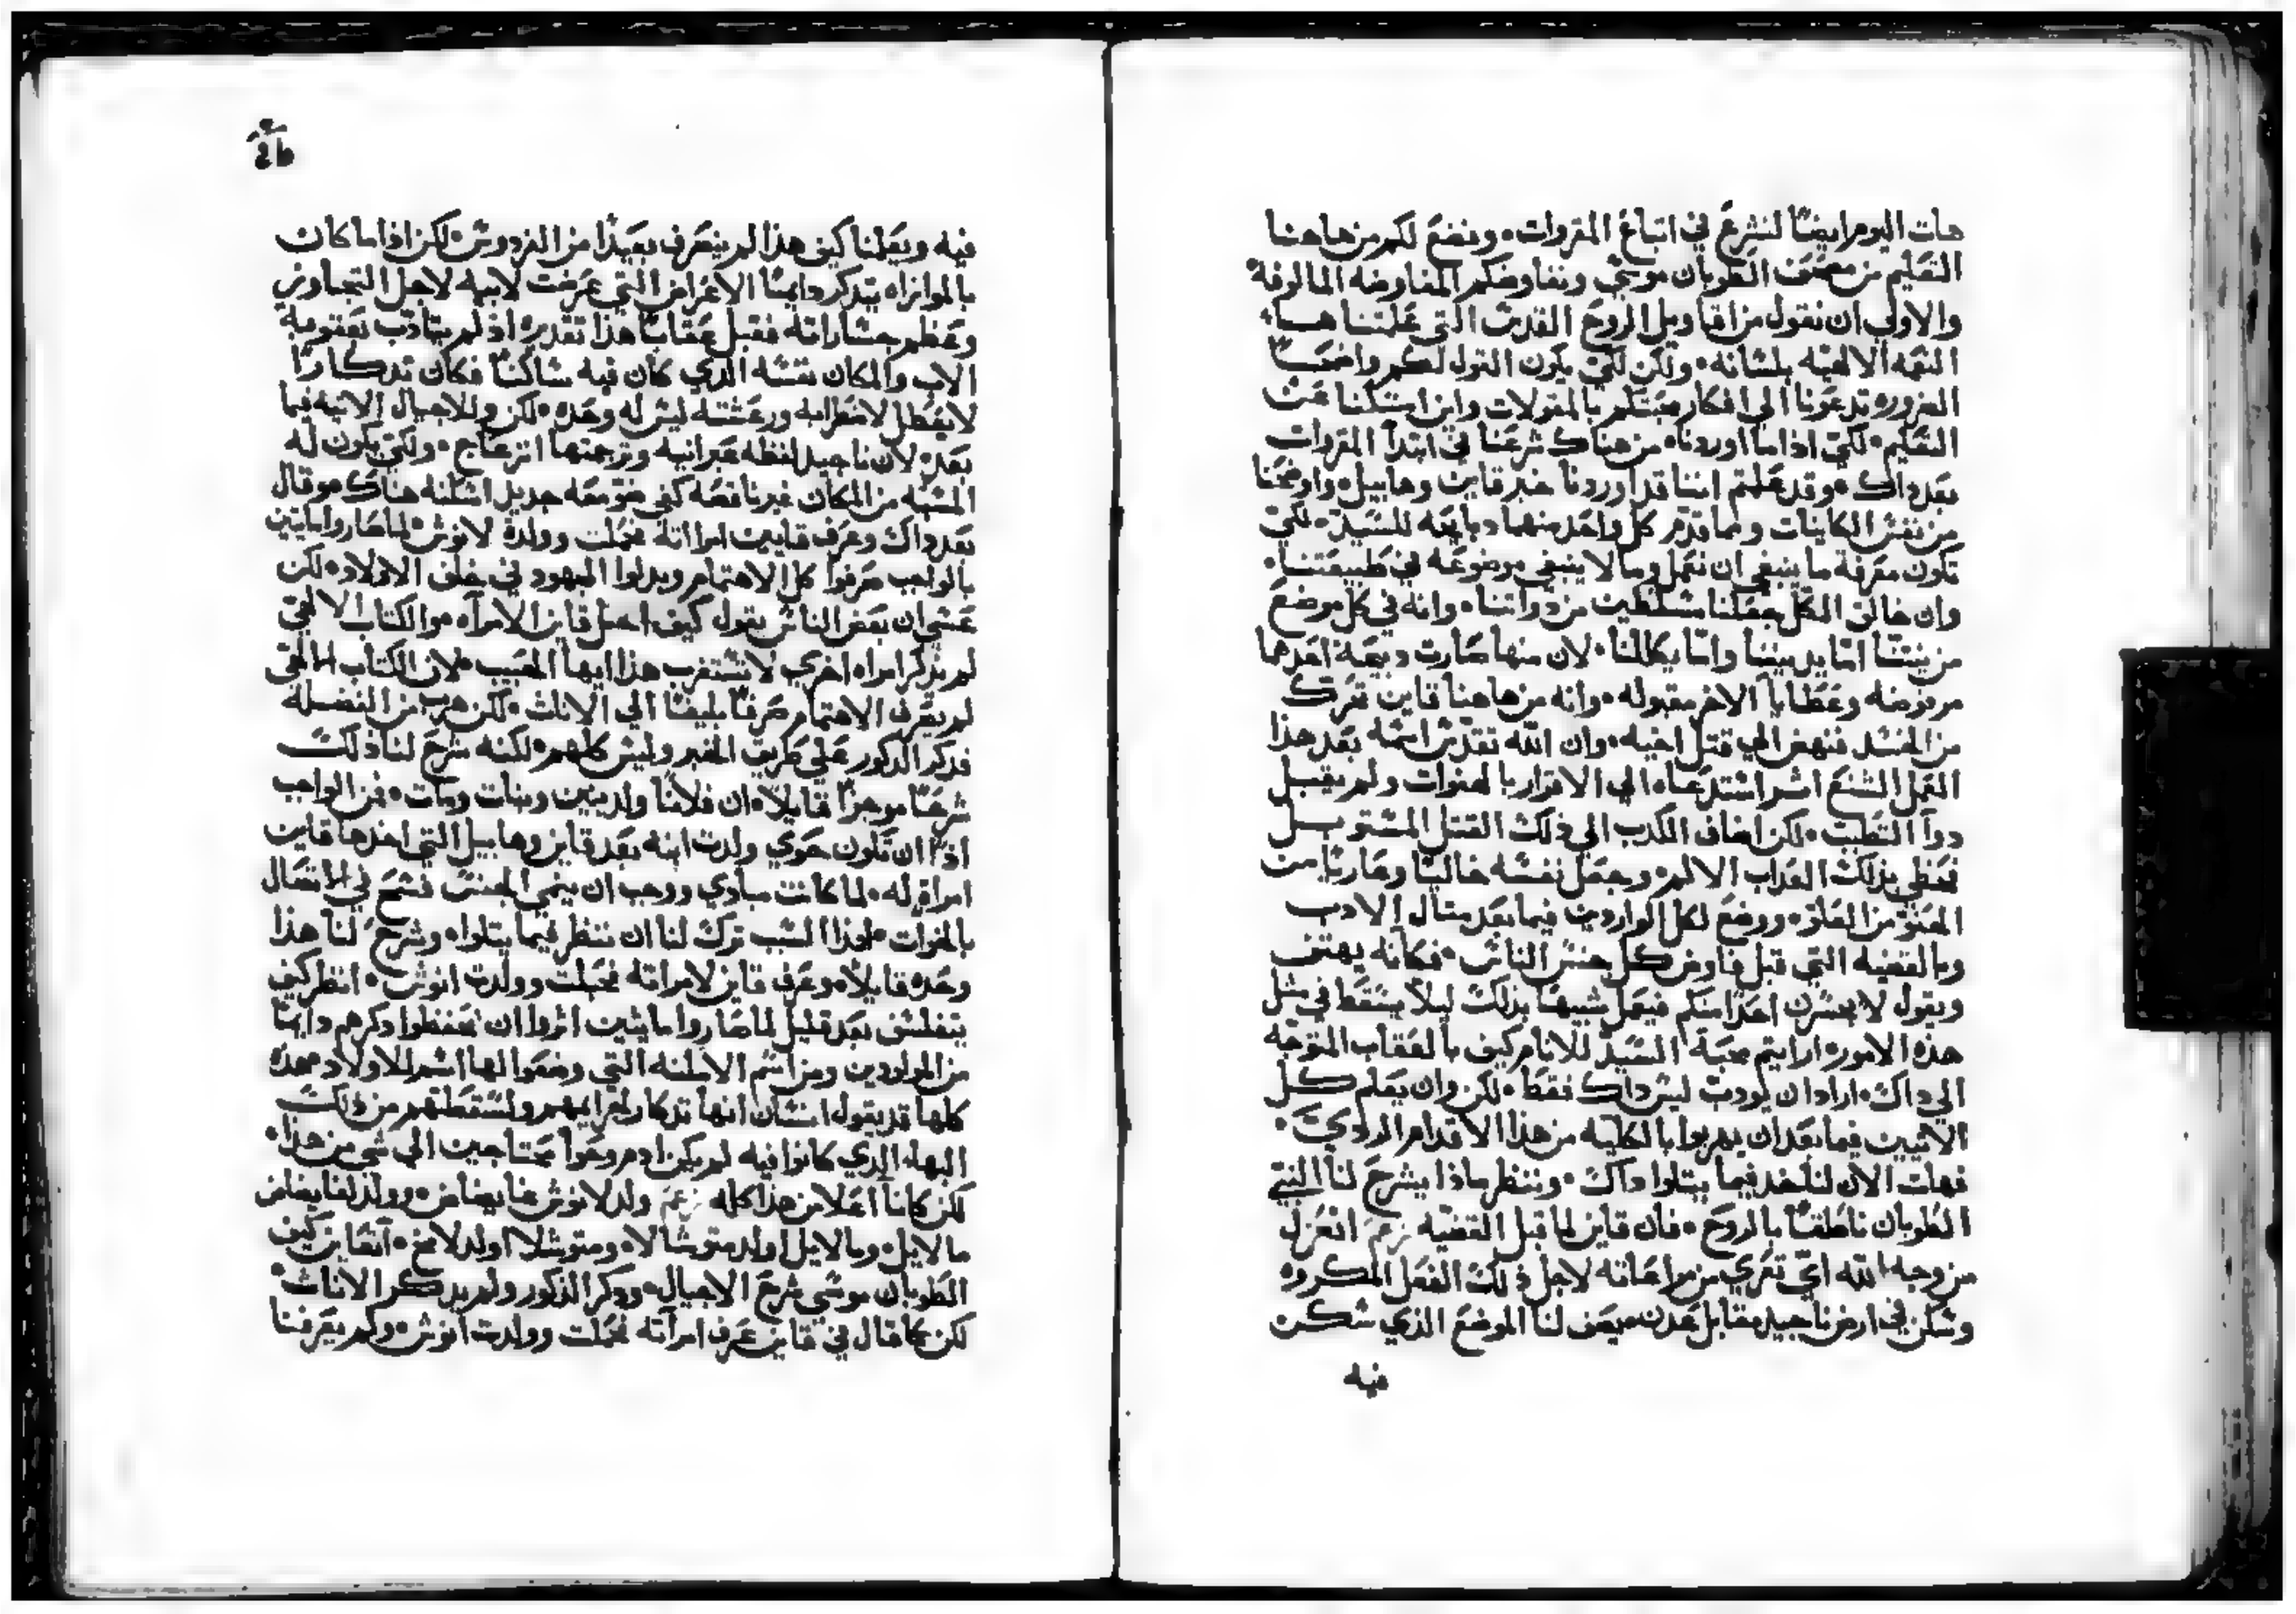 هات اليوم ايضًا لنشرع في اتباع المقروات• ونضع لكم من هاهنا
التعليم من مصحف الطوبان موسي ونفاوضكم المفاوضه المالوفة•
والاولي ان نقول من اقاويل الروح القدس التي علمتنا هـا
النعمه الالهيه بلسانه• ولكن لكي يكون القول لكم واضحـا
الضروره تدعونا الي افكار محبتكم بالمقولات واين امسكنا عن
التعليم• لكي اذا ما اوردنا• من هناك شرعنا في ابتدا المقروات
بعد داك• وقد علمتم اننا قد اوردنا خبر قاين وهابيل• واوضحنا
من نفس الكاينات ومما قدم كل واحد منهما دبايحه للسيد• لكي
تكون معرفة ما ينبغي ان نعمل وما لا ينبغي موضوعه في طبيعتنا•
وان خالق الكل جعلنا مسلطين من دواتنا• وانه في كل موضع
من نيتنا اما يديننا واما يكللنا• لان منها صارت دبيحة احدهما
مرفوضه وعطايا الاخر مقبوله• وانه من هاهنا قاين تحرك
من الحسد فنهض الي قتل اخيه• وان الله تقدس اسمه بعد هذا
العمل الشنع اشر استدعاه الي الاقرار بالهفوات ولم يقبـل
دوآ التطبيب• لكن اضاف الكدب الي ذلك القتل المستوبـل
فحظي بذلك العذاب الاليم• وجعل نفسه خاليًا وعاريًا من
الحنو من العلو• ووضع لكل الواردين فيما بعد مثال الادب
وبالقضيه التي قبل فاوض كل جنس الناس• فكانه يهتف
ويقول لا يجسرن احدًا منكم فيعمل شبيهًا بذلك ليلا يسقط في مثل
هذه الامور• ارايتم محبة السيد للانام كيف بالعقاب المتوجه
الي داك• اراد ان يودب ليس داك فقط• لكن وان يعلم كـل
الاتيين فيما بعد ان يهربوا بالكليه من هذا الاقدام الردي•
فهات الان لناخد فيما يتلوا داك• وننظر ماذا يشرح لنا النبي
الطوبان ناطقًا بالروح• فان قاين لما قبل القضيه زعم انعزل
من وجه الله اي تعري من مراعاته لاجل ذلك الفعل المكروه
وسكن في ارض ناجيد مقابل عدن• يصف لنا الموضع الذي سكـن
فيه
فيه ويعلمنا كيف هذا لم ينصرف بعيدًا من الفردوس• لكن اذا ما كان
بالموازاه يتدكر دايمًا الاعراض التي عرضت لابيه لاجل التجاوز
وعظم جساراته فقبل عقابًا هذا تقديره اذ لم يتادب بعقوبة
الاب والمكان نفسه الذي كان فيه ساكنًا فكان تدكارًا
لا يبطل لاضطرابه ورعشته ليس له وحده• لكن وللاجيال الاتيه فيما
بعد• لان ناجيد لفظه عبرانيه وترجمتها انزعاج• ولكي يكون له
المشبه من المكان غير ناقصه كفى جديد اسكنه هناك• وقال
بعد داك وعرف قايين امراته فحبلت وولدة لانوش• لما صاروا مايتين
بالواجب صرفوا كل الاهتمام وبدلوا المجهود في خلف الاولاد• لكن
عسي ان بعض الناس يقول كيف احبل قاين الامراه• والكتاب الالهي
لم يدكر امراه اخري لا تستغرب هذا ايها الحبيب• لان الكتاب الالهي
لم يصرف الاهتمام صرفًا بليغًا الي الاناث• لكن هرب من الفضله
فدكر الدكور علي طريق الخبر وليس كلهم• لكنه شرح لنا ذلك
شرحًا موجزًا قايلًا• ان فلانًا ولد بنين وبنات ومات• فمن الواجب
اذًا ان تكون حوي ولدت ابنه بعد قاين وهابيل التي اخدها قاين
امراة له• لما كانت مبادي ووجب ان ينمي الجنس فسمح في الاتصال
بالاخوات• لهذا السبب ترك لنا ان ننظر فيما يتلوا• وشرح لنا هذا
وحده قايلًا• وعرف قاين لامراته فحبلت وولدت انوش• انظر كيف
يتفلسف بعد قليل لما صاروا مايتين اثروا ان يحفظوا دكرهم دايمًا
من المولودين ومن اسم الامكنه التي وضعوا لها اسم للاولاد• هذه
كلها قد يقول انسان انها تدكار لجرايمهم ولسقطتهم من ذلك
البهاء الذي كانوا فيه لم يكن ادم وحوا محتاجين الي شي من هذا•
لكن كانا اعلا من هذا كله زعم ولد لانوش غايضاض• وولد لغايضاض
مالايل• ومالايل اولد متوشالا• ومتوشلا اولد لامخ• اتعاين كيف
الطوبان موسي شرح الاجيال• ودكر الذكور ولم يدكر الاناث•
لكن كما قال في قاين عرف امرآته فحبلت وولدت انوش• ولم يعرفنا